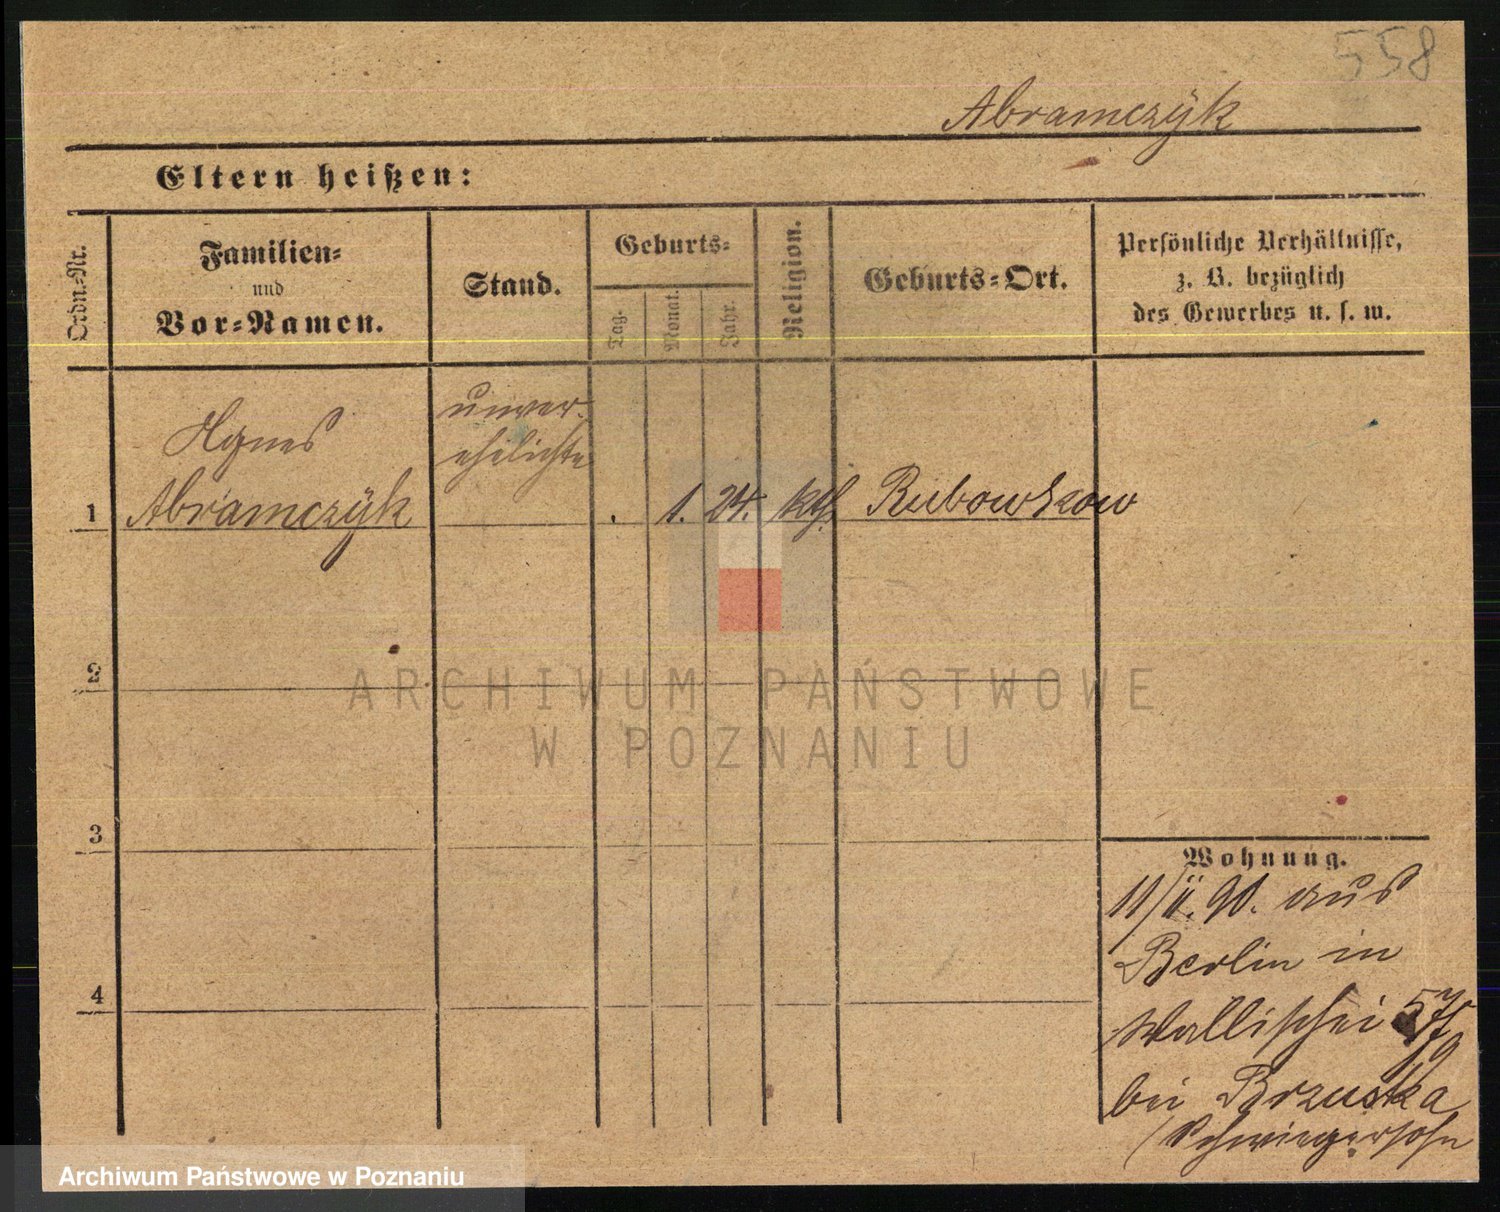 558
Abramczÿk
Eltern heißen:
Ordn.-Nr.
Familien-
und
Vor-Namen.
Stand.
Geburts-
Tag.
Monat.
Jahr.
Religion.
Geburts-Ort.
Persönliche Verhältnisse,
z. B. bezüglich
des Gewerbes u. s. w.
Agnes
unver-
ehelichte
1 Abramczÿk . 1. 24. kth.
2
3
4
Wohnung.
11/II. 90. aus
Berlin in
Wallischei
bei Brzuska
(Schwiegersohn
ARCHIWUM PAŃSTWOWE
W POZNANIU
Archiwum Państwowe w Poznaniu